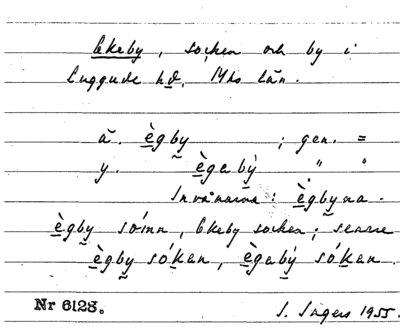 Ekeby, socken och by i
Luggude hd, Mhs län.
ä. ègby ; gen. =
y. ègabý " "
Invånarna: ègbyna.
ègby sómn, Ekeby socken; senare
ègby sókan, ègabý sókan.
Nr 6128. I. Ingers 1955.